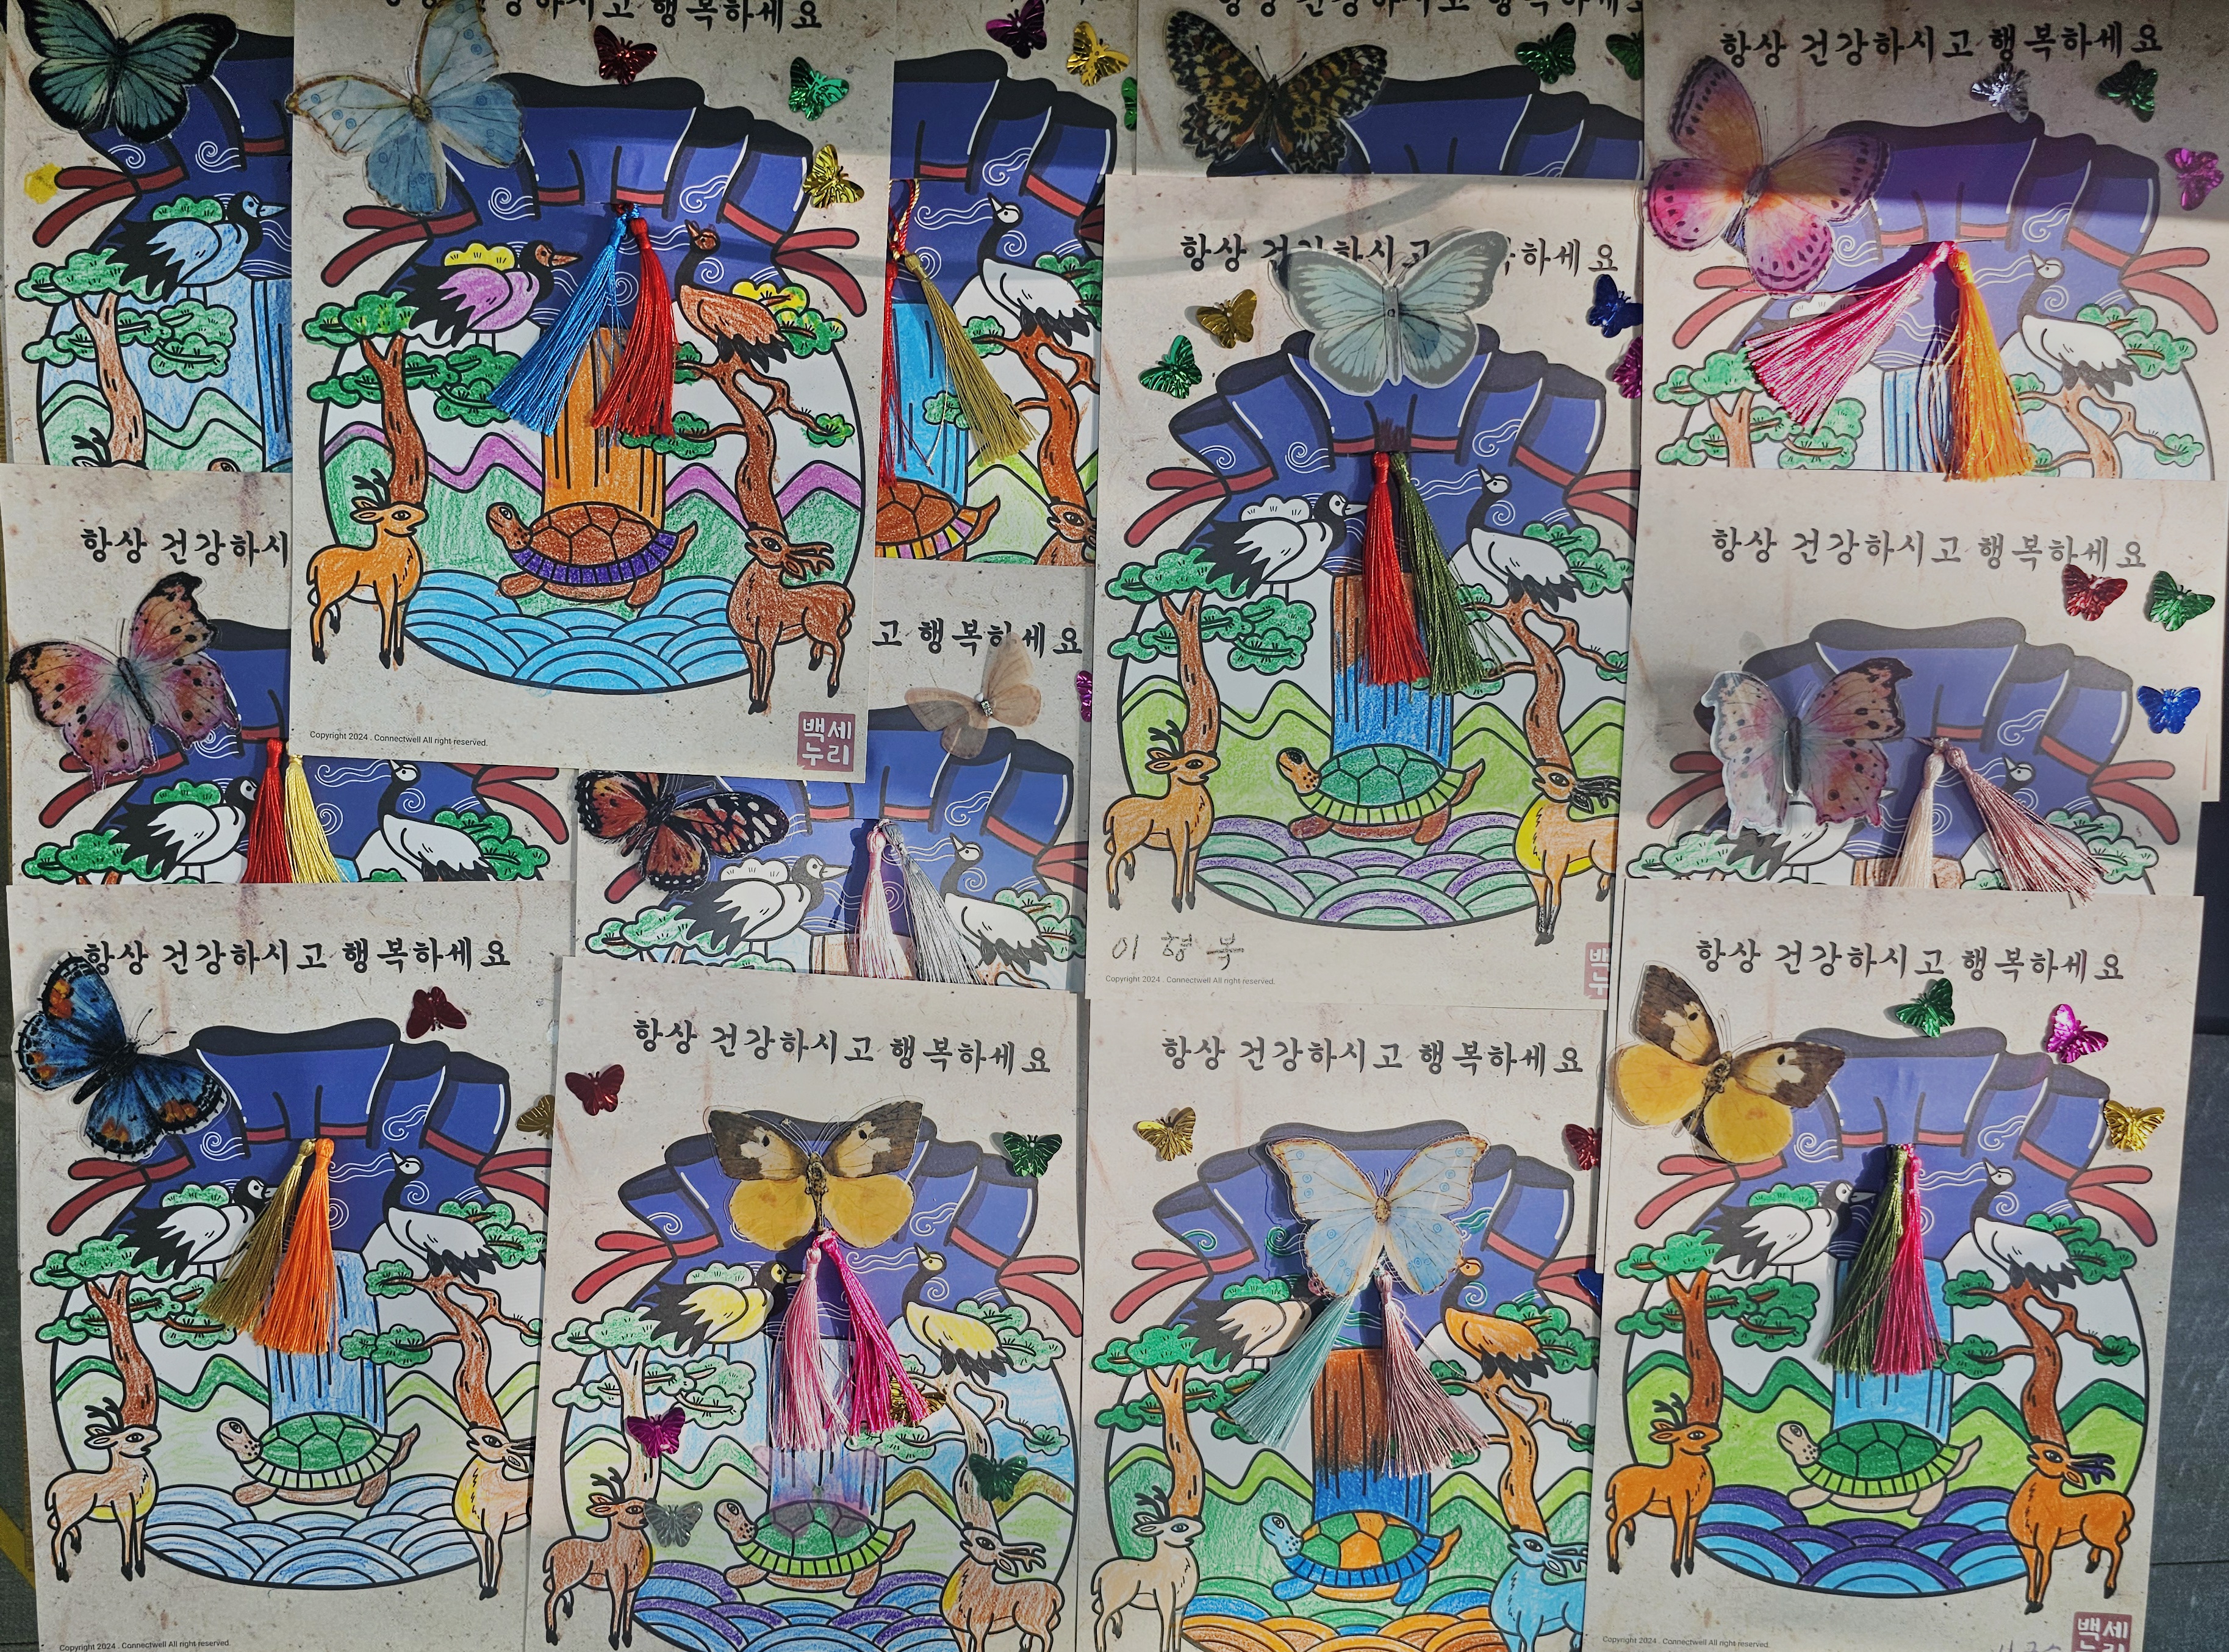 항상 건강하시고 행복하세요
건강하시고 행복하세요
항상 건강하시고 행복하세요
항상 건 하세요
항상 건강하시
항상 건강하시고 행복하세요
고 행복하세요
Copyright 2024 . Connectwell All right reserved.
백세
누리
이형복
Copyright 2024 . Connectwell All right reserved.
백
누
항상 건강하시고 행복하세요
항상 건강하시고 행복하세요
항상 건강하시고 행복하세요
항상 건강하시고 행복하세요
Copyright 2024 . Connectwell All right reserved.
Copyright 2024 . Connectwell All right reserved.
백세